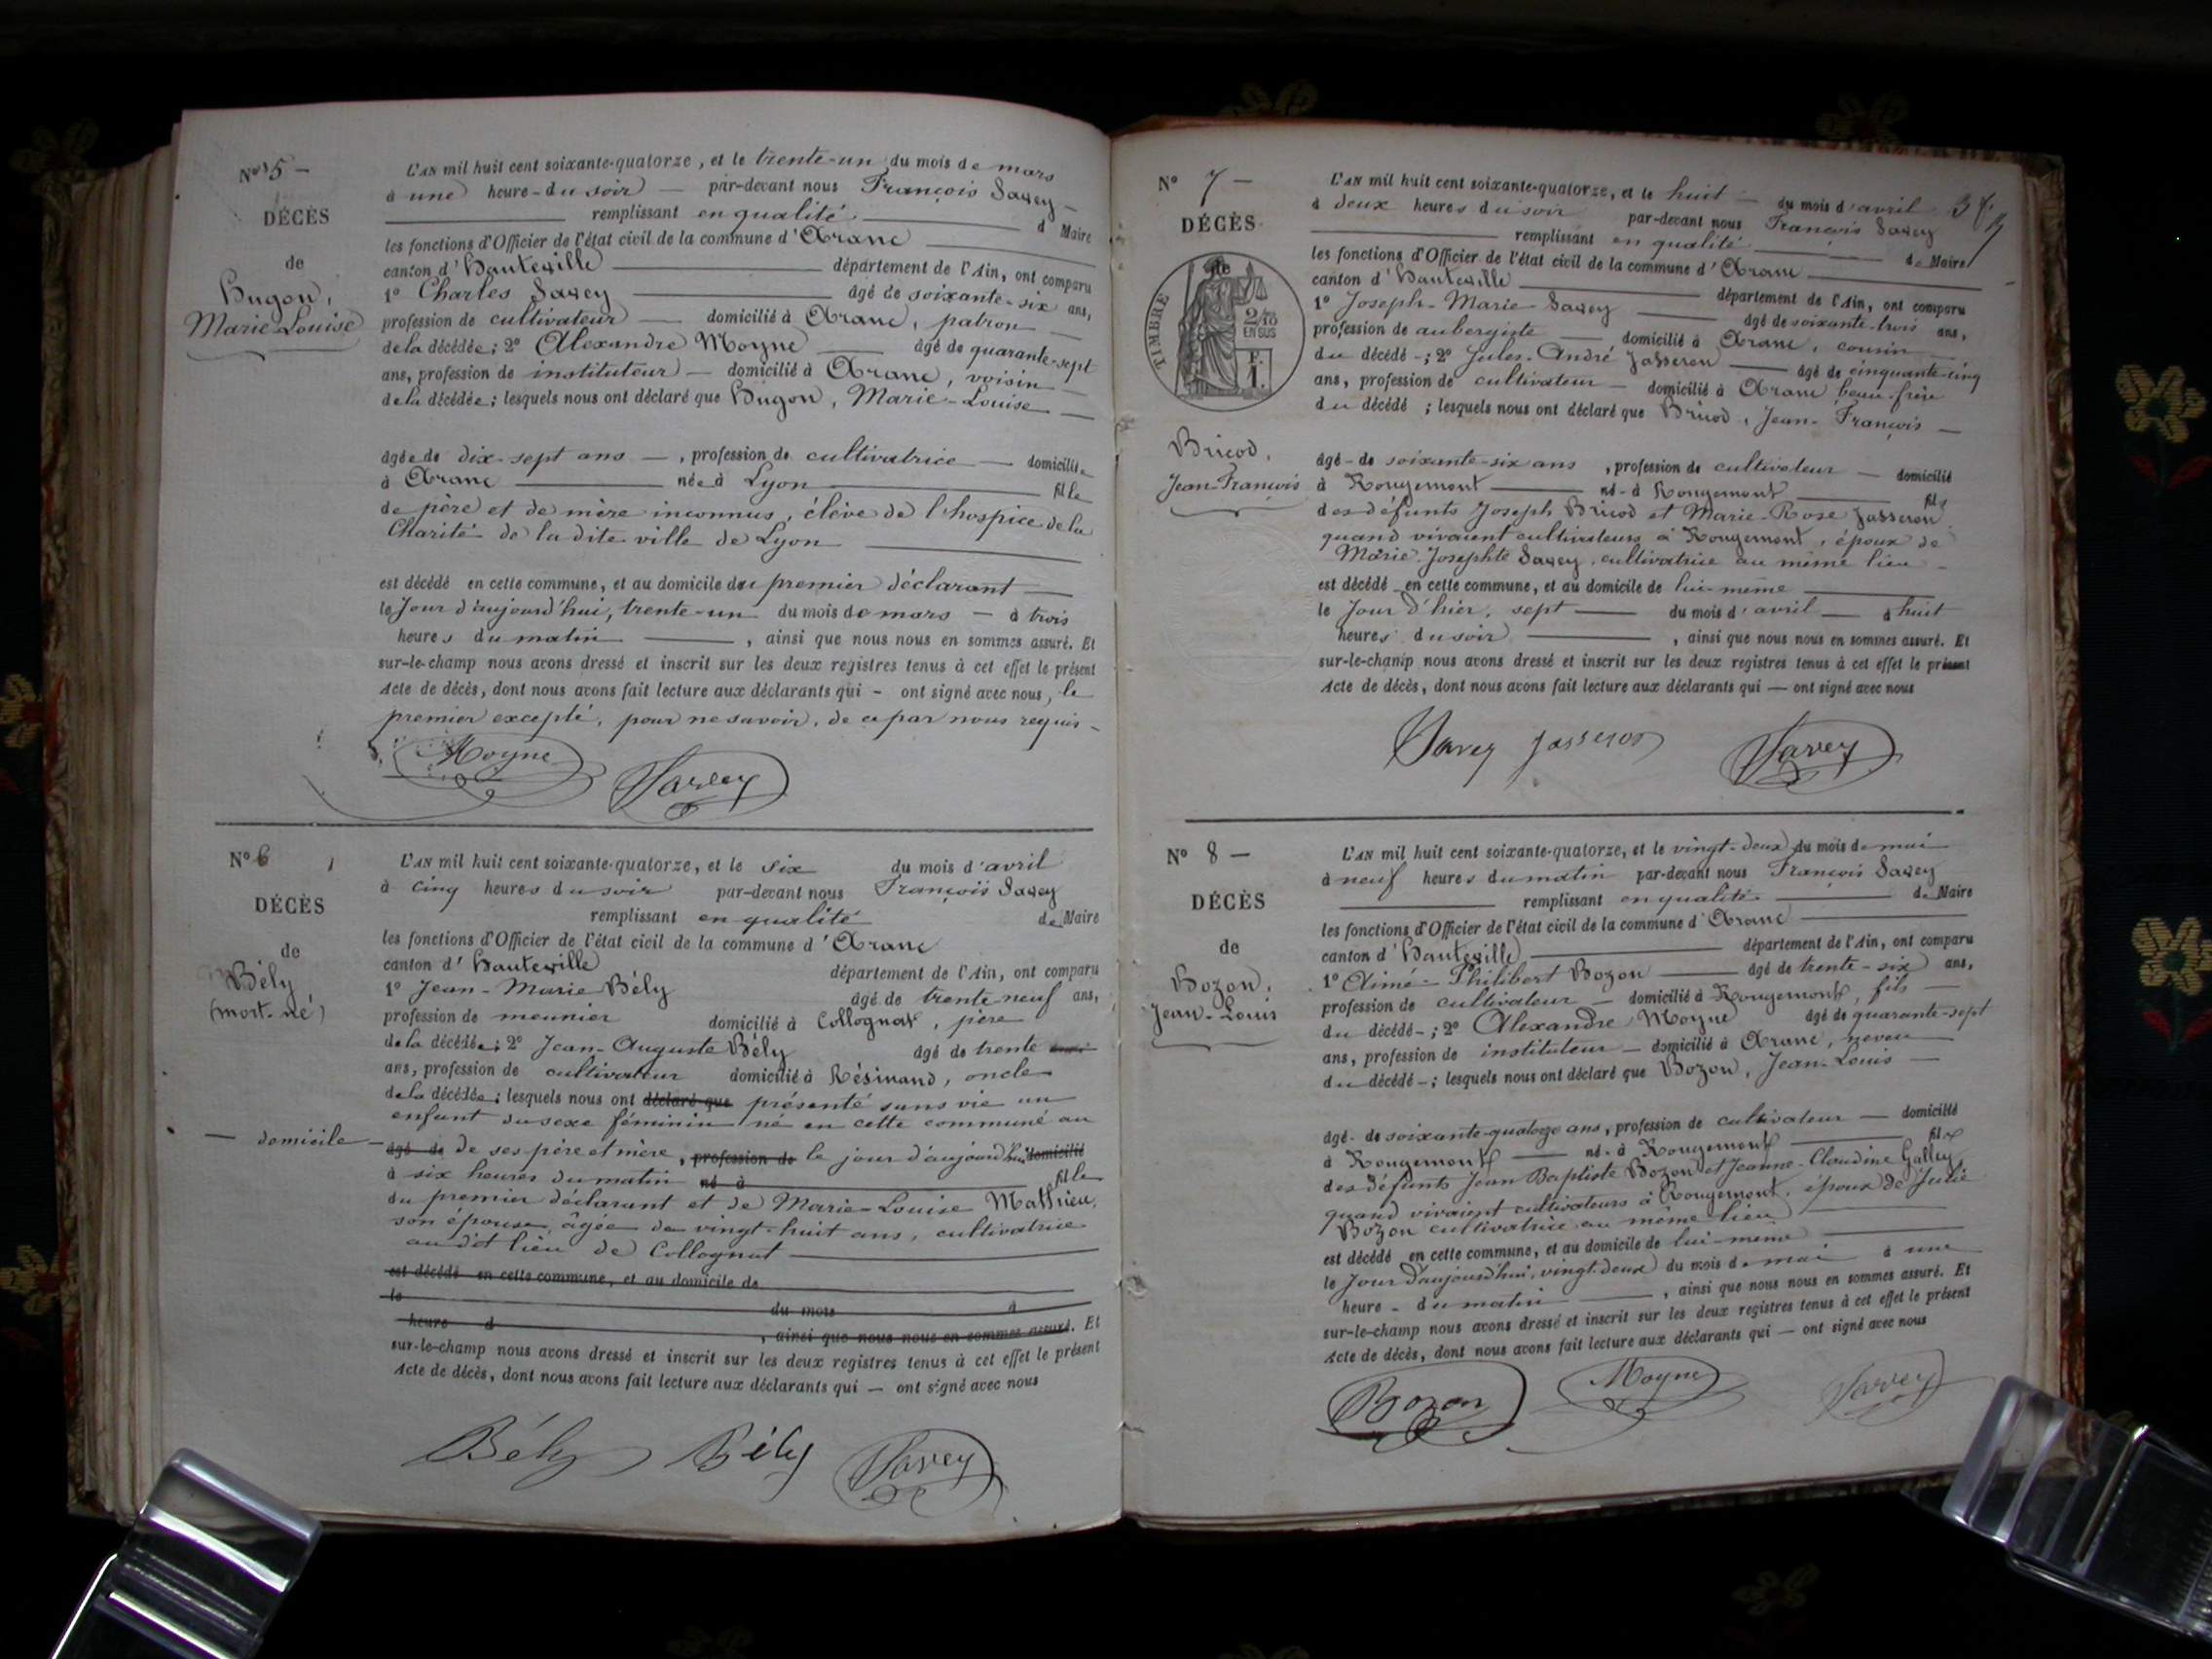 N° 5 —
DÉCÈS
de
Hugon,
Marie-Louise
L'AN mil huit cent soixante-quatorze, et le trente-un du mois de mars
à une heure du soir — par-devant nous François Savey —
remplissant en qualité d Maire
les fonctions d'Officier de l'état civil de la commune d'Aranc
canton d'Hauteville département de l'Ain, ont comparu
1° Charles Savey âgé de soixante-six ans,
profession de cultivateur — domicilié à Aranc, patron
de la décédée; 2° Alexandre Moyne âgé de quarante-sept
ans, profession de instituteur — domicilié à Aranc, voisin
de la décédée; lesquels nous ont déclaré que Hugon, Marie-Louise —
âgée de dix-sept ans —, profession de cultivatrice — domiciliée
à Aranc née à Lyon fille
de père et de mère inconnus, élève de l'hospice de la
Charité de la dite ville de Lyon
est décédé en cette commune, et au domicile du premier déclarant —
le Jour d'aujourd'hui, trente-un du mois de mars — à trois
heures du matin, ainsi que nous nous en sommes assuré. Et
sur-le-champ nous avons dressé et inscrit sur les deux registres tenus à cet effet le présent
Acte de décès, dont nous avons fait lecture aux déclarants qui - ont signé avec nous, le
premier excepté, pour ne savoir, de ce par nous requis -
Moyne Savey
N° 6
DÉCÈS
de
Bély
(mort-né)
L'AN mil huit cent soixante-quatorze, et le six du mois d'avril
à cinq heures du soir par-devant nous François Savey
remplissant en qualité de Maire
les fonctions d'Officier de l'état civil de la commune d'Aranc
canton d'Hauteville département de l'Ain, ont comparu
1° Jean-Marie Bély âgé de trente-neuf ans,
profession de meunier domicilié à Collognat, père
de la décédée; 2° Jean-Auguste Bély âgé de trente
ans, profession de cultivateur domicilié à Résinand, oncle
de la décédée; lesquels nous ont déclaré que présenté sans vie un
enfant du sexe féminin né en cette commune au
— domicile — âgé de de ses père et mère, profession de le jour d'aujourd'hui domicilié
à six heures du matin né à fille
du premier déclarant et de Marie-Louise Mathieu,
son épouse, âgée de vingt-huit ans, cultivatrice
au dit lieu de Collognat
est décédé en cette commune, et au domicile de
le du mois à
heure d, ainsi que nous nous en sommes assuré. Et
sur-le-champ nous avons dressé et inscrit sur les deux registres tenus à cet effet le présent
Acte de décès, dont nous avons fait lecture aux déclarants qui — ont signé avec nous
Bély Bély Savey
N° 7 —
DÉCÈS
de
TIMBRE
2/10
EN SUS
F.
1.
Bricod,
Jean-François
L'AN mil huit cent soixante-quatorze, et le huit — du mois d'avril
à deux heures du soir par-devant nous François Savey
remplissant en qualité de Maire
les fonctions d'Officier de l'état civil de la commune d'Aranc
canton d'Hauteville département de l'Ain, ont comparu
1° Joseph-Marie Savey âgé de soixante-trois ans,
profession de aubergiste domicilié à Aranc, cousin
du décédé -; 2° Jules-André Jasseron âgé de cinquante-cinq
ans, profession de cultivateur — domicilié à Aranc beau-frère
du décédé; lesquels nous ont déclaré que Bricod, Jean-François —
âgé - de soixante-six ans, profession de cultivateur — domicilié
à Rougemont né - à Rougemont fils
des défunts Joseph Bricod et Marie-Rose Jasseron
quand vivaient cultivateurs à Rougemont, époux de
Marie-Josephte Savey, cultivatrice au même lieu -
est décédé en cette commune, et au domicile de lui-même
le Jour d'hier, sept — du mois d'avril — à huit
heures du soir, ainsi que nous nous en sommes assuré. Et
sur-le-champ nous avons dressé et inscrit sur les deux registres tenus à cet effet le présent
Acte de décès, dont nous avons fait lecture aux déclarants qui — ont signé avec nous
Savey Jasseron Savey
N° 8 —
DÉCÈS
de
Bozon,
Jean-Louis
L'AN mil huit cent soixante-quatorze, et le vingt-deux du mois de mai
à neuf heures du matin par-devant nous François Savey
remplissant en qualité de Maire
les fonctions d'Officier de l'état civil de la commune d'Aranc
canton d'Hauteville département de l'Ain, ont comparu
1° Aimé-Philibert Bozon âgé de trente-six ans,
profession de cultivateur — domicilié à Rougemont, fils —
du décédé -; 2° Alexandre Moyne âgé de quarante-sept
ans, profession de instituteur — domicilié à Aranc, neveu
du décédé -; lesquels nous ont déclaré que Bozon, Jean-Louis —
âgé - de soixante-quatorze ans, profession de cultivateur — domicilié
à Rougemont né - à Rougemont fils
des défunts Jean Baptiste Bozon et Jeanne-Claudine Galley,
quand vivaient cultivateurs à Rougemont, époux de Julie
Bozon cultivatrice au même lieu
est décédé en cette commune, et au domicile de lui-même
le Jour d'aujourd'hui, vingt-deux du mois de mai à une
heure - du matin, ainsi que nous nous en sommes assuré. Et
sur-le-champ nous avons dressé et inscrit sur les deux registres tenus à cet effet le présent
Acte de décès, dont nous avons fait lecture aux déclarants qui — ont signé avec nous
Bozon Moyne Savey